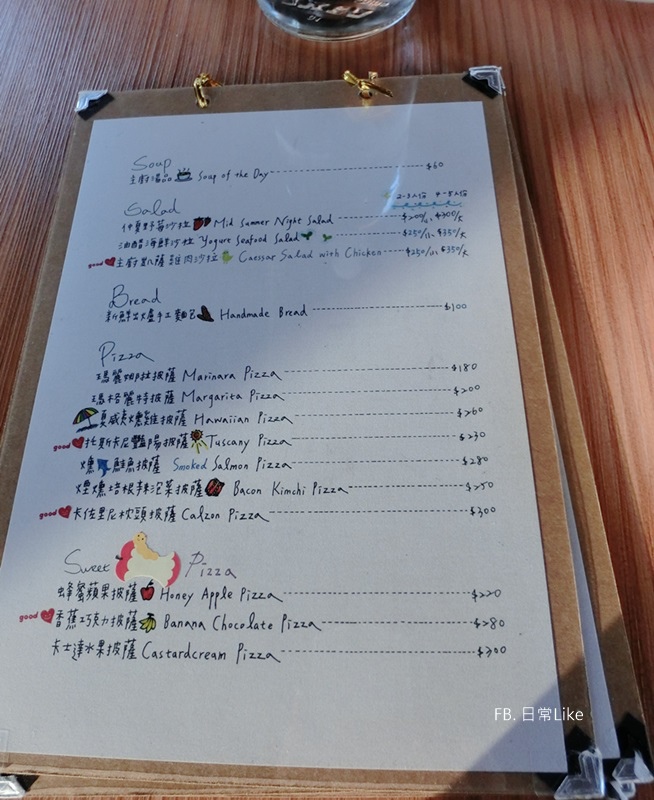 Soup
主廚湯品 Soup of the Day $60
Salad 2-3人份 4-5人份
仲夏野莓沙拉 Mid Summer Night Salad $200/小, $300/大
油醋海鮮沙拉 Yogure Seafood Salad $250/小, $350/大
good 主廚凱薩雞肉沙拉 Caessar Salad with Chicken $250/小, $350/大
Bread
新鮮出爐手工麵包 Handmade Bread $100
Pizza
瑪麗娜拉披薩 Marinara Pizza $180
瑪格麗特披薩 Margarita Pizza $200
夏威夷燻雞披薩 Hawaiian Pizza $260
good 托斯卡尼豔陽披薩 Tuscany Pizza $230
燻鮭魚披薩 Smoked Salmon Pizza $280
煙燻培根辣泡菜披薩 Bacon Kimchi Pizza $250
good 卡佐里尼枕頭披薩 Calzon Pizza $300
Sweet Pizza
蜂蜜蘋果披薩 Honey Apple Pizza $220
good 香蕉巧克力披薩 Banana Chocolate Pizza $280
卡士達水果披薩 Castardcream Pizza $300
FB. 日常Like